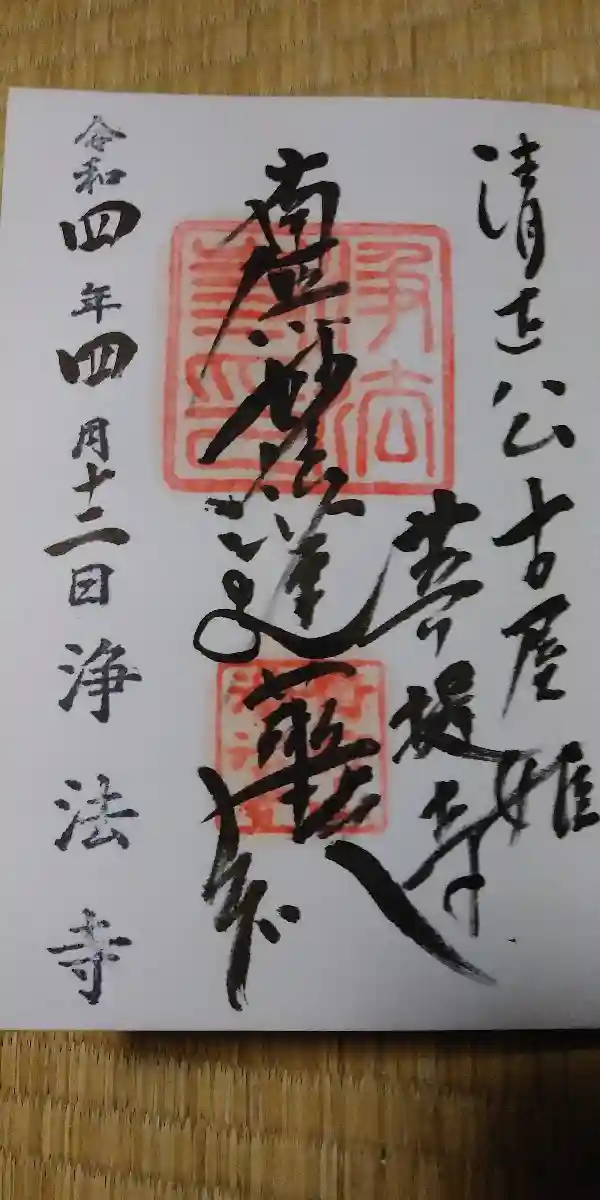 清正公古屋姫
菩提寺
南無妙法蓮華経
浄法
寺印
令和四年四月十二日 浄法寺